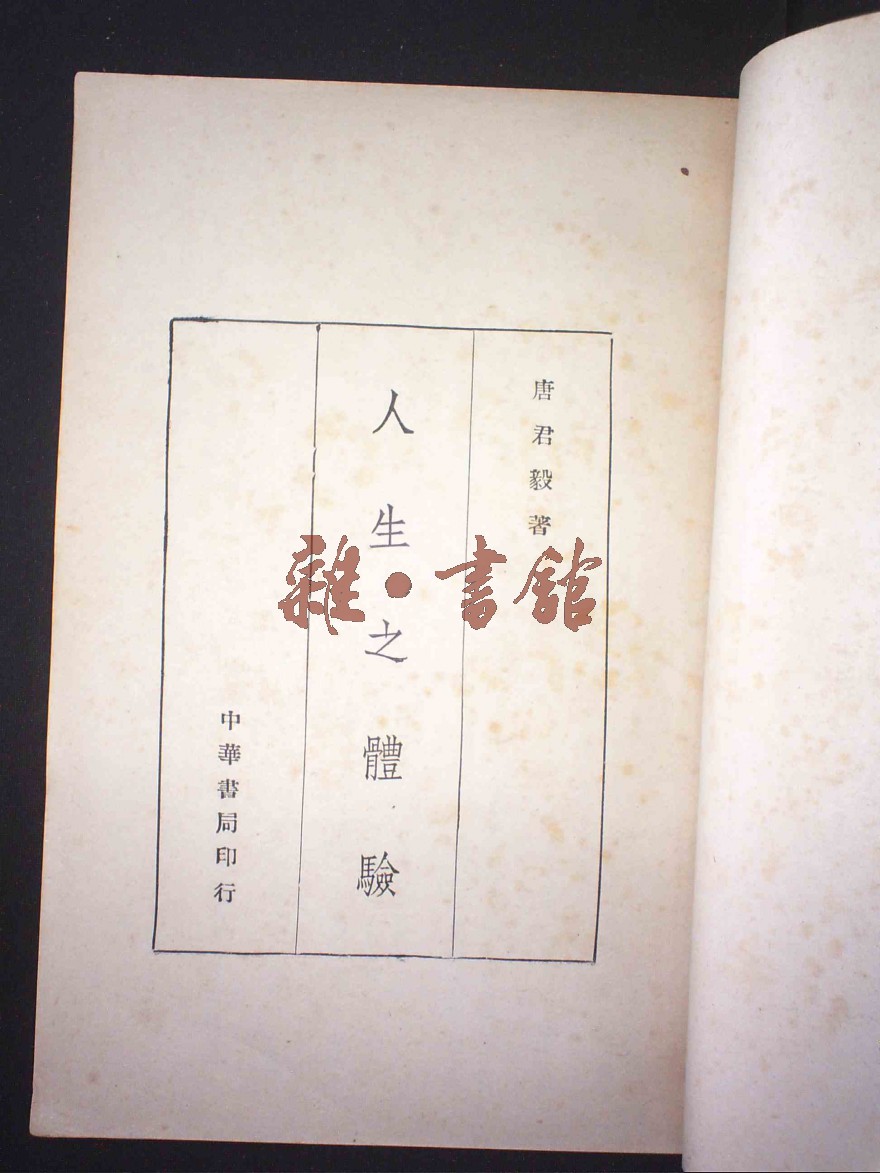 唐君毅著
人生之體驗
中華書局印行
雜·書館